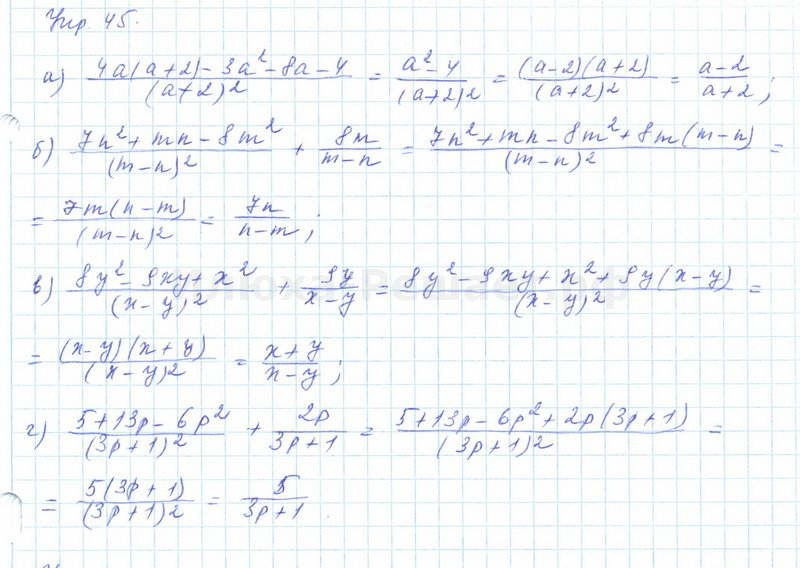 Упр. 45.
а) (4a(a+2) - 3a² - 8a - 4)/(a+2)² = (a² - 4)/(a+2)² = ((a-2)(a+2))/(a+2)² = (a-2)/(a+2);
б) (7n² + mn - 8m²)/(m-n)² + 8m/(m-n) = (7n² + mn - 8m² + 8m(m-n))/(m-n)² =
= (7m(n-m))/(m-n)² = 7n/(n-m);
в) (8y² - 9xy + x²)/(x-y)² + 9y/(x-y) = (8y² - 9xy + x² + 9y(x-y))/(x-y)² =
= ((x-y)(x+y))/(x-y)² = (x+y)/(x-y);
г) (5+13p - 6p²)/(3p+1)² + 2p/(3p+1) = (5+13p - 6p² + 2p(3p+1))/(3p+1)² =
= (5(3p+1))/(3p+1)² = 5/(3p+1)